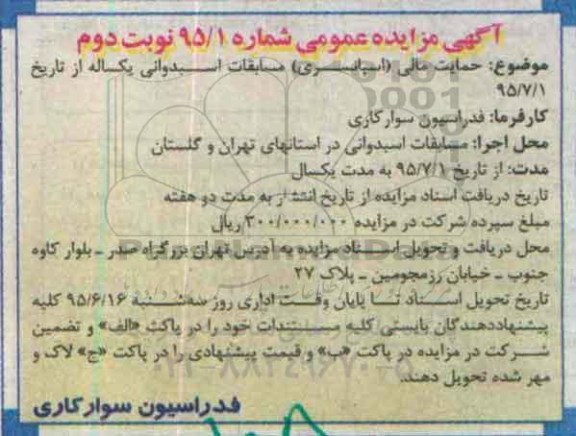 آگهی مزایده عمومی شماره ۹۵/۱ نوبت دوم
موضوع: حمایت مالی (اسپانسری) مسابقات اسبدوانی یکساله از تاریخ
۹۵/۷/۱
کارفرما: فدراسیون سوارکاری
محل اجرا: مسابقات اسبدوانی در استانهای تهران و گلستان
مدت: از تاریخ ۹۵/۷/۱ به مدت یکسال
تاریخ دریافت اسناد مزایده از تاریخ انتشار به مدت دو هفته
مبلغ سپرده شرکت در مزایده ۳۰۰/۰۰۰/۰۰۰ ریال
محل دریافت و تحویل اسناد مزایده به آدرس تهران بزرگراه صدر ـ بلوار کاوه
جنوب ـ خیابان رزمجومین ـ پلاک ۲۷
تاریخ تحویل اسناد تا پایان وقت اداری روز سه‌شنبه ۹۵/۶/۱۶ کلیه
پیشنهاددهندگان بایستی کلیه مستندات خود را در پاکت «الف» و تضمین
شرکت در مزایده در پاکت «ب» و قیمت پیشنهادی را در پاکت «ج» لاک و
مهر شده تحویل دهند.
فدراسیون سوارکاری